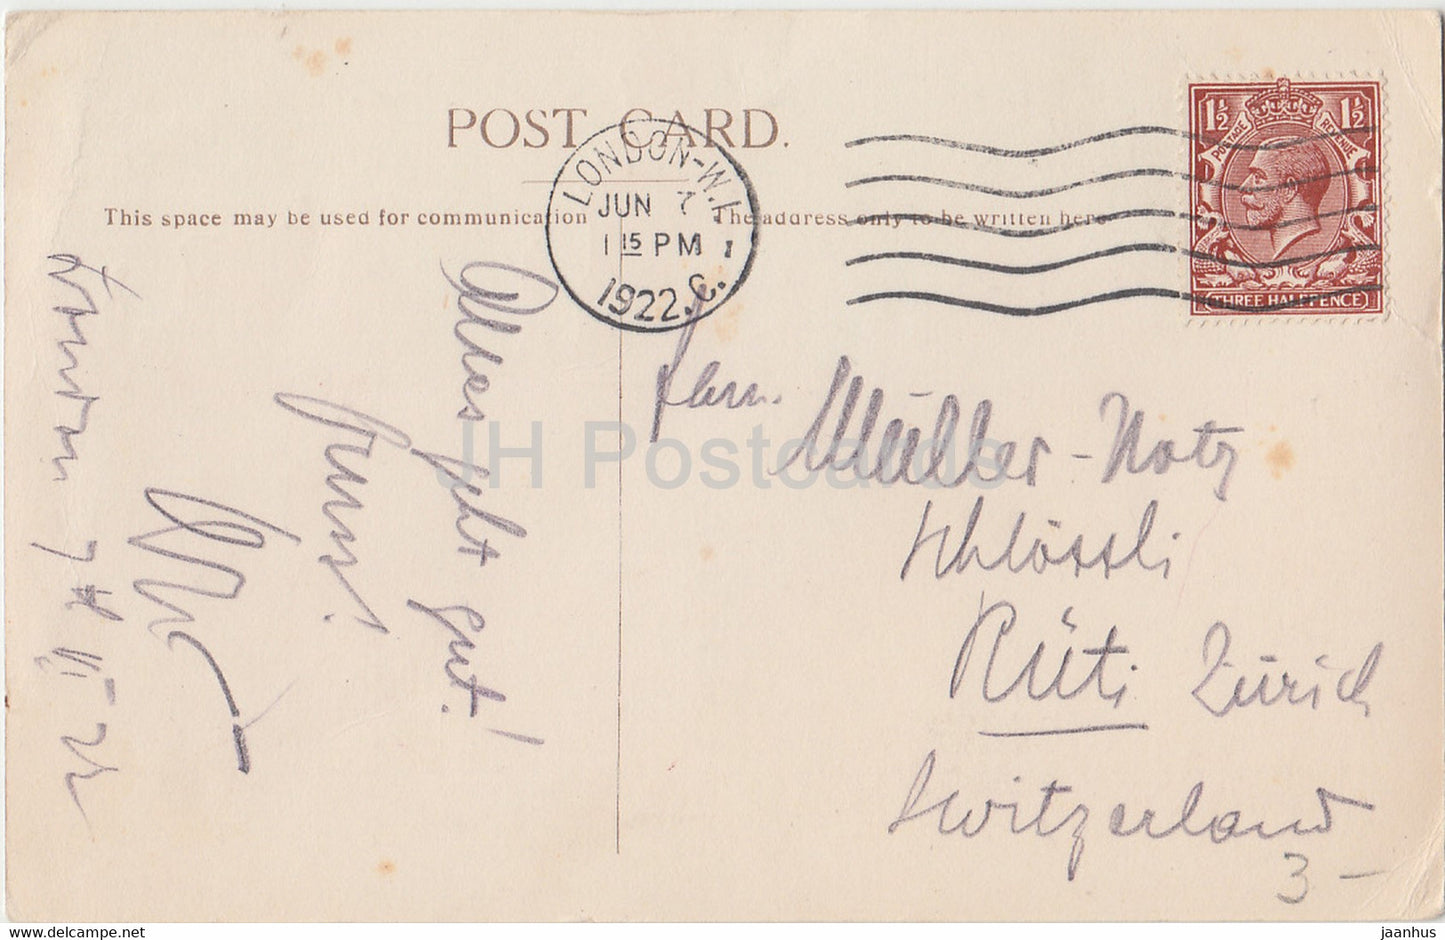 POST CARD.
This space may be used for communication
The address only to be written here
LONDON-W.1.
JUN 7
1 15 PM
1922.
1½ 1½
POSTAGE REVENUE
THREE HALFPENCE
Alles geht gut!
Gruss!
London 7 VI 22
Fam.
Müller-Notz
Schlössli
Rüti Zürich
Switzerland
3 -
JH Postcards
www.delcampe.net
jaanhus